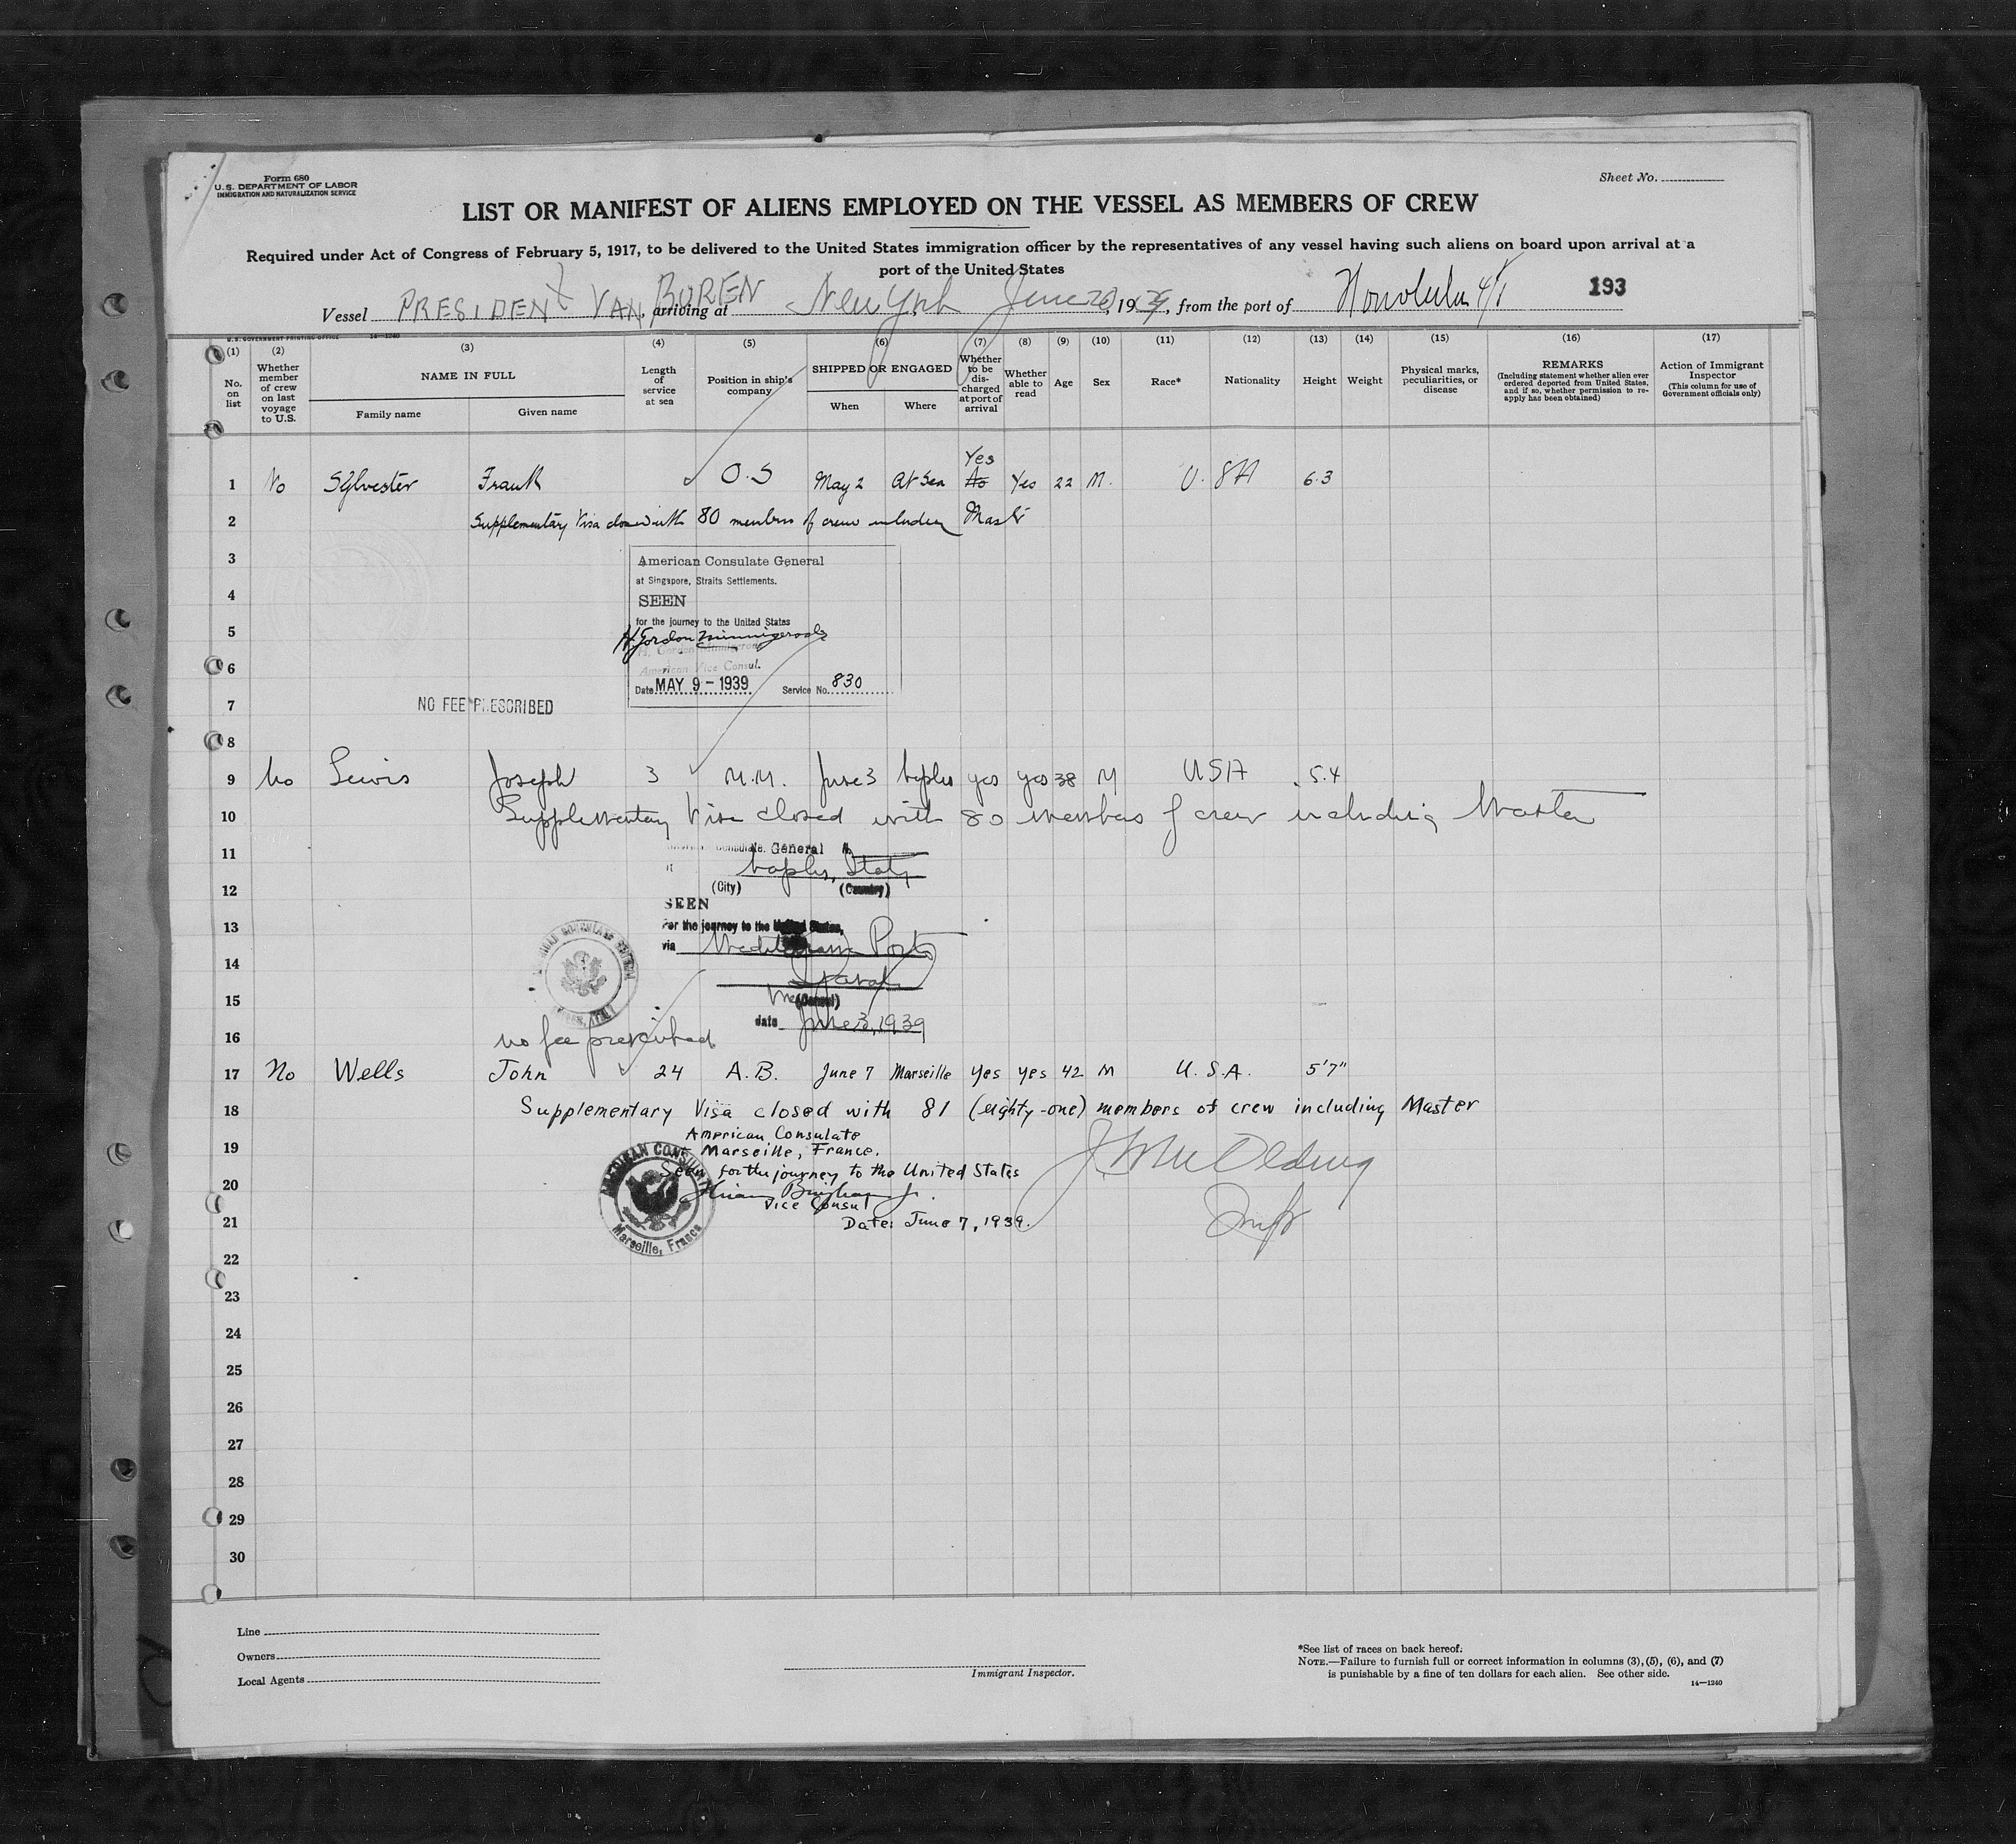 Form 680
U.S. DEPARTMENT OF LABOR
IMMIGRATION AND NATURALIZATION SERVICE
Sheet No.
LIST OR MANIFEST OF ALIENS EMPLOYED ON THE VESSEL AS MEMBERS OF CREW
Required under Act of Congress of February 5, 1917, to be delivered to the United States immigration officer by the representatives of any vessel having such aliens on board upon arrival at a
port of the United States
Vessel PRESIDENT VAN BUREN, arriving at New York June 20, 1939, from the port of Honolulu 4/1 193
U.S. GOVERNMENT PRINTING OFFICE 14—1240
(1) (2) (3) (4) (5) (6) (7) (8) (9) (10) (11) (12) (13) (14) (15) (16) (17)
No. on list
Whether member of crew on last voyage to U.S.
NAME IN FULL
Family name Given name
Length of service at sea
Position in ship's company
SHIPPED OR ENGAGED
When Where
Whether to be discharged at port of arrival
Whether able to read
Age
Sex
Race*
Nationality
Height
Weight
Physical marks, peculiarities, or disease
REMARKS
(Including statement whether alien ever ordered deported from United States, and if so, whether permission to re-apply has been obtained)
Action of Immigrant Inspector
(This column for use of Government officials only)
Yes
1 No Sylvester Frank O.S May 2 At Sea No Yes 22 M. U.SA 6.3
2 Supplementary Visa closed with 80 members of crew including Master
3 American Consulate General
at Singapore, Straits Settlements.
4 SEEN
for the journey to the United States
5 H. Gordon Minnigerode
H. Gordon Minnigerode
6 American Vice Consul.
Date MAY 9 - 1939 Service No. 830
7 NO FEE PRESCRIBED
8
9 No Lewis Joseph 3 M.M. June 3 Naples yes yes 38 M USA 5.4
10 Supplementary Visa closed with 80 members of crew including Master
11 Consulate General
Naples, Italy
12 (City) (Country)
SEEN
13 For the journey to the United States,
via Mediterranean Ports
14
15 (Consul)
date June 3, 1939
16 no fee prescribed
17 No Wells John 24 A.B. June 7 Marseille Yes yes 42 M U.S.A. 5'7"
18 Supplementary Visa closed with 81 (eighty-one) members of crew including Master
American Consulate
19 Marseille, France.
Seen for the journey to the United States
20 Hiram Bingham Jr.
Vice Consul
21 Date: June 7, 1939.
AMERICAN CONSULATE
Marseille, France
22
23
24
25
26
27
28
29
30
Line
Owners
Local Agents
Immigrant Inspector.
*See list of races on back hereof.
NOTE.—Failure to furnish full or correct information in columns (3), (5), (6), and (7)
is punishable by a fine of ten dollars for each alien. See other side.
14—1240